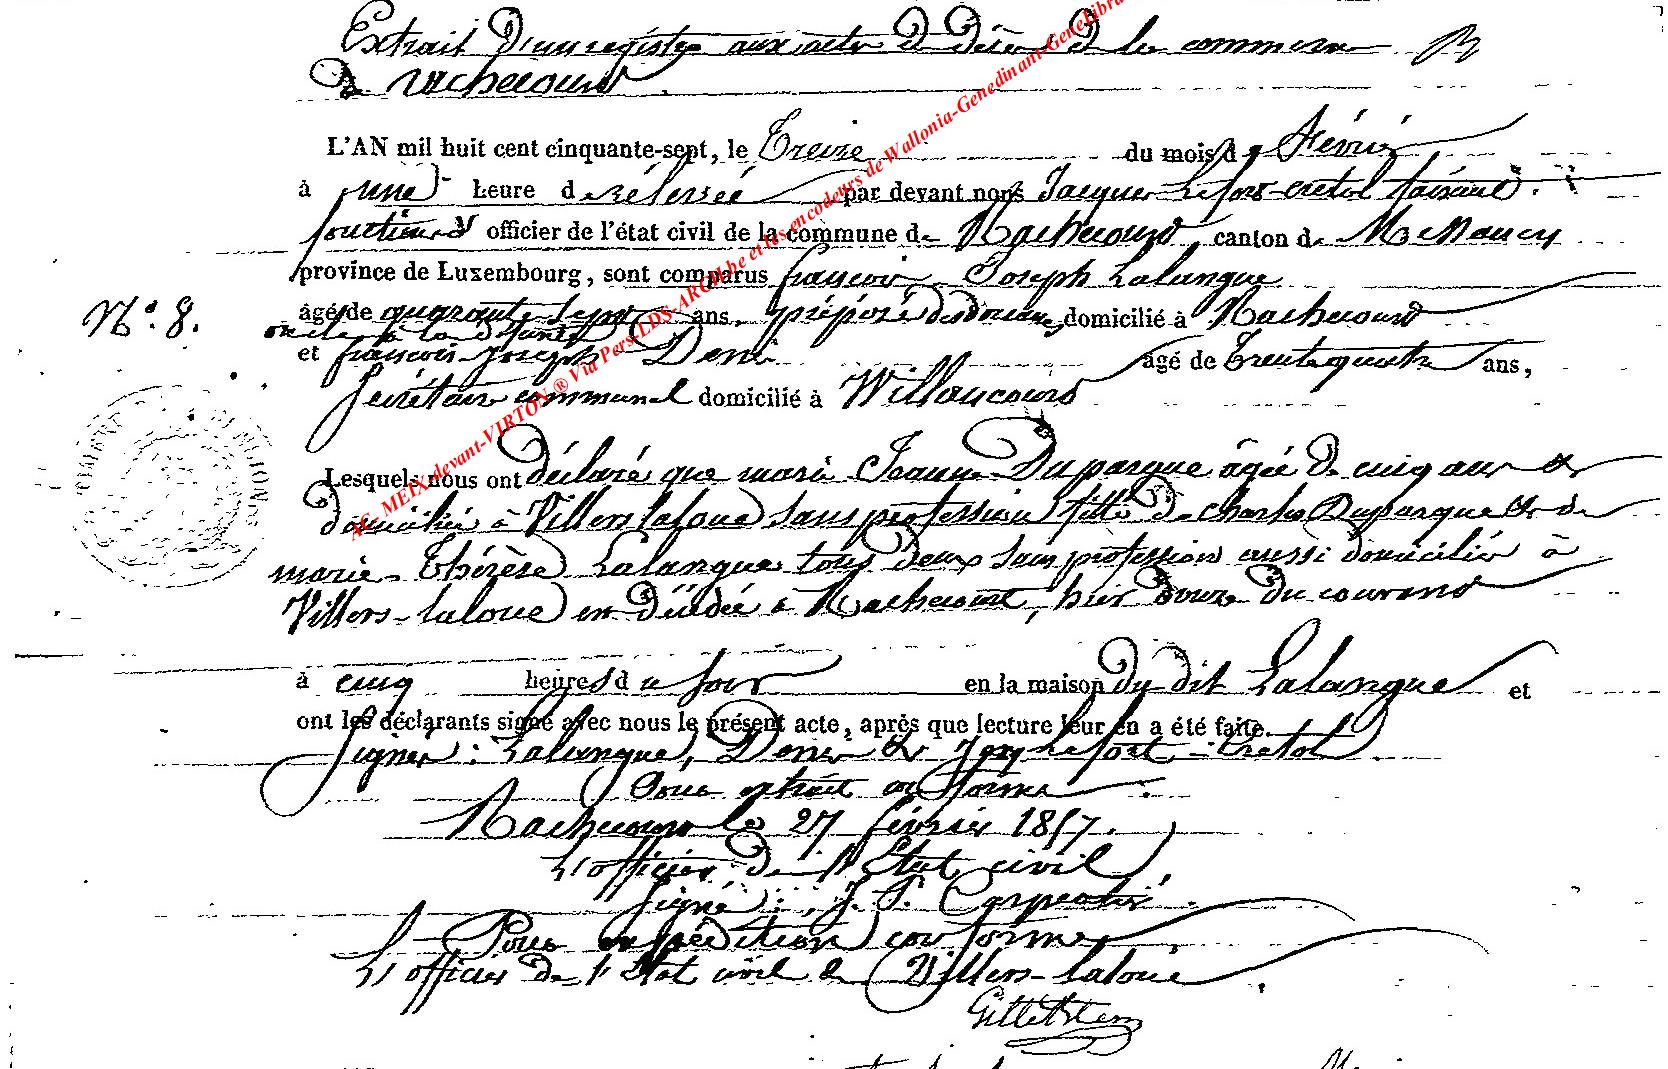 Extrait d'un registre aux actes de décès de la commune
de Rachecourt
L'AN mil huit cent cinquante-sept, le Treize du mois de Février
à une heure de rélevée par devant nous Jacques Lefort-cretol faisant
fonctions d officier de l'état civil de la commune de Rachecourt canton de Messancy
province de Luxembourg, sont comparus françois Joseph Lalangue
N° 8. âgé de quarante sept ans, préposé des douanes, domicilié à Rachecourt
oncle à la défunte
et françois-Joseph Denis âgé de Trente quatre ans,
Secrétaire communal domicilié à Willancourt
Lesquels nous ont déclaré que marie Jeanne Duparque âgée de cinq ans &
domiciliée à Villers laloue sans profession fille de charles Duparque & de
marie-Thérèse Lalangue tous deux sans profession aussi domiciliés à
Villers-laloue est décédée à Rachecourt, hier douze du courant
à cinq heures du soir en la maison du dit Lalangue et
ont les déclarants signé avec nous le présent acte, après que lecture leur en a été faite.
Signés : Lalangue, Denis & Jques Lefort-Cretol
Pour extrait conforme
Rachecourt le 27 février 1857.
L'officier de l'Etat civil
Signé : J. P. Carpentier.
Pour expédition conforme
L'officier de l'Etat civil de Villers-laloue
AC_MEIX-devant-VIRTON ® Via Pers-LDS-ARCH.be et les encodeurs de Wallonia-Genedinant-GeneLibra